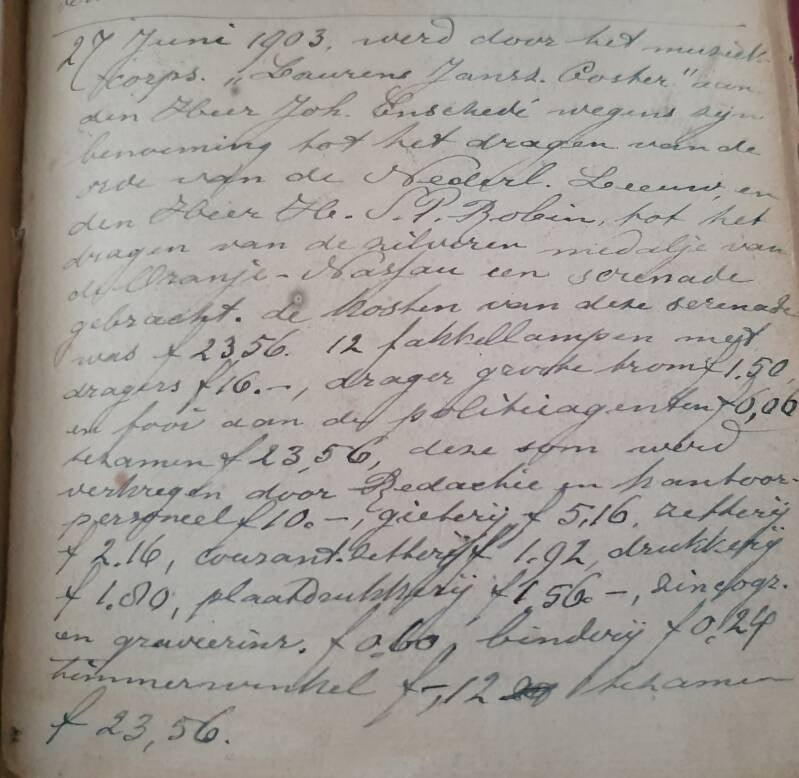 27 Juni 1903, werd door het muziek-
korps. "Laurens Jansz. Coster" aan
den Heer Joh. Enschedé wegens zijn
benoeming tot het dragen van de
orde van de Nederl. Leeuw, en
den Heer He. S. P. Robin, tot het
dragen van de zilveren medalje van
de Oranje-Nassau een serenade
gebracht. de kosten van deze serenade
was f 23 56. 12 fakkellampen met
dragers f 16.-, drager groote trom f 1.50,
en fooi aan de politieagenten f 6,06
tezamen f 23,56, deze som werd
verkregen door Redactie en kantoor-
personeel f 10.-, gieterij f 5,16, zetterij
f 2.16, courant.zetterij f 1.92, drukkerij
f 1.80, plaatdrukkerij f 1,56.-, zincogr.
en graveerinr. f 0.60, binderij f 0.24
timmerwinkel f -,12 tezamen
f 23,56.